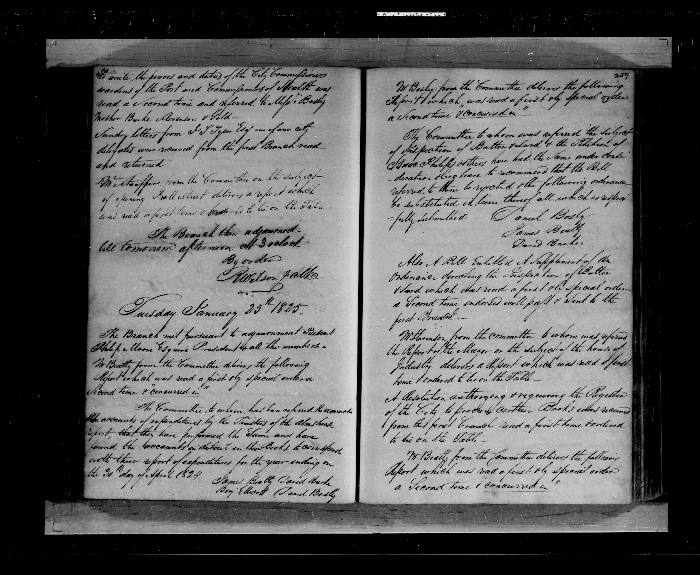 to unite the powers and duties of the City Commissioners
wardens of the Port and Commissioners of Health was
read a second time and referred to Messrs Bosly
Mosher Burke Stevenson & Feld
Sundry letters from Esqr one of our
delegates were received from the first Branch read
and returned
Mr Stauffer from the Committee on the subject
of opening Street delivers a report which
was read a first time & to lie on the Table
The Branch then adjourned
till tomorrow afternoon at 3 oclock
By order
R Watson
Tuesday January 25th 1825.
The Branch met pursuant to adjournment Present
Philip Moore Esquire President & all the members
Mr Beatty from the Committee delivers the following
Report which was read a first & by special order a
Second time & concurred in
The Committee to whom has been referred the
accounts of expenditures by the Trustees of the Alms house
report, that they have performed the Same and have
found the accounts in their Books to correspond
with their report of expenditures for the year ending on
the 30th day of April 1824
James Beatty David Burke
Benj Ellicott Daniel Bosly
257
Mr Bosly from the Committee delivers the following
Report which was read a first & by special order
a Second time & concurred in
The Committee to whom was referred the Subject
of Inspection of Butter & Lard & the Petition of
Isaac Philips & others have had the Same under Consi-
deration & beg leave to recommend that the Bill
referred to them be rejected & the following ordinance
be substituted in lieu thereof all which is respect
-fully submitted Daniel Bosly
James Beatty
David Burke
Also A Bill Entitled A Supplement to the
Ordinance directing the Inspection of Butter
& Lard which was read a first & by special order
a Second time endorsed will pass & sent to the
first Branch.
Mr Stevenson from the committee to whom was referred
the Report of the Mayor on the subject of the house of
Industry delivers a report which was read a first
time & ordered to lie on the Table
A resolution authorizing & requiring the Register
of the City to procure certain Books was received
from the first Branch read a first time & ordered
to lie on the Table
Mr Beatty from the Committee delivers the following
Report which was read a first & by special order
a Second time & concurred in